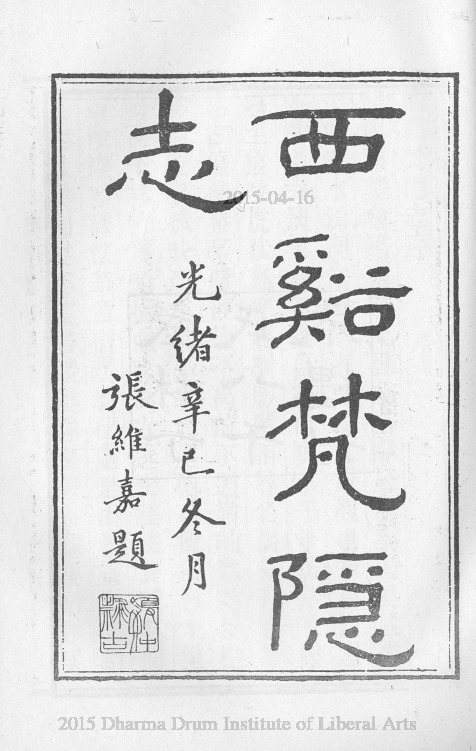 西谿梵隱
志
光緒辛巳冬月
張維嘉題
2015-04-16
2015 Dharma Drum Institute of Liberal Arts